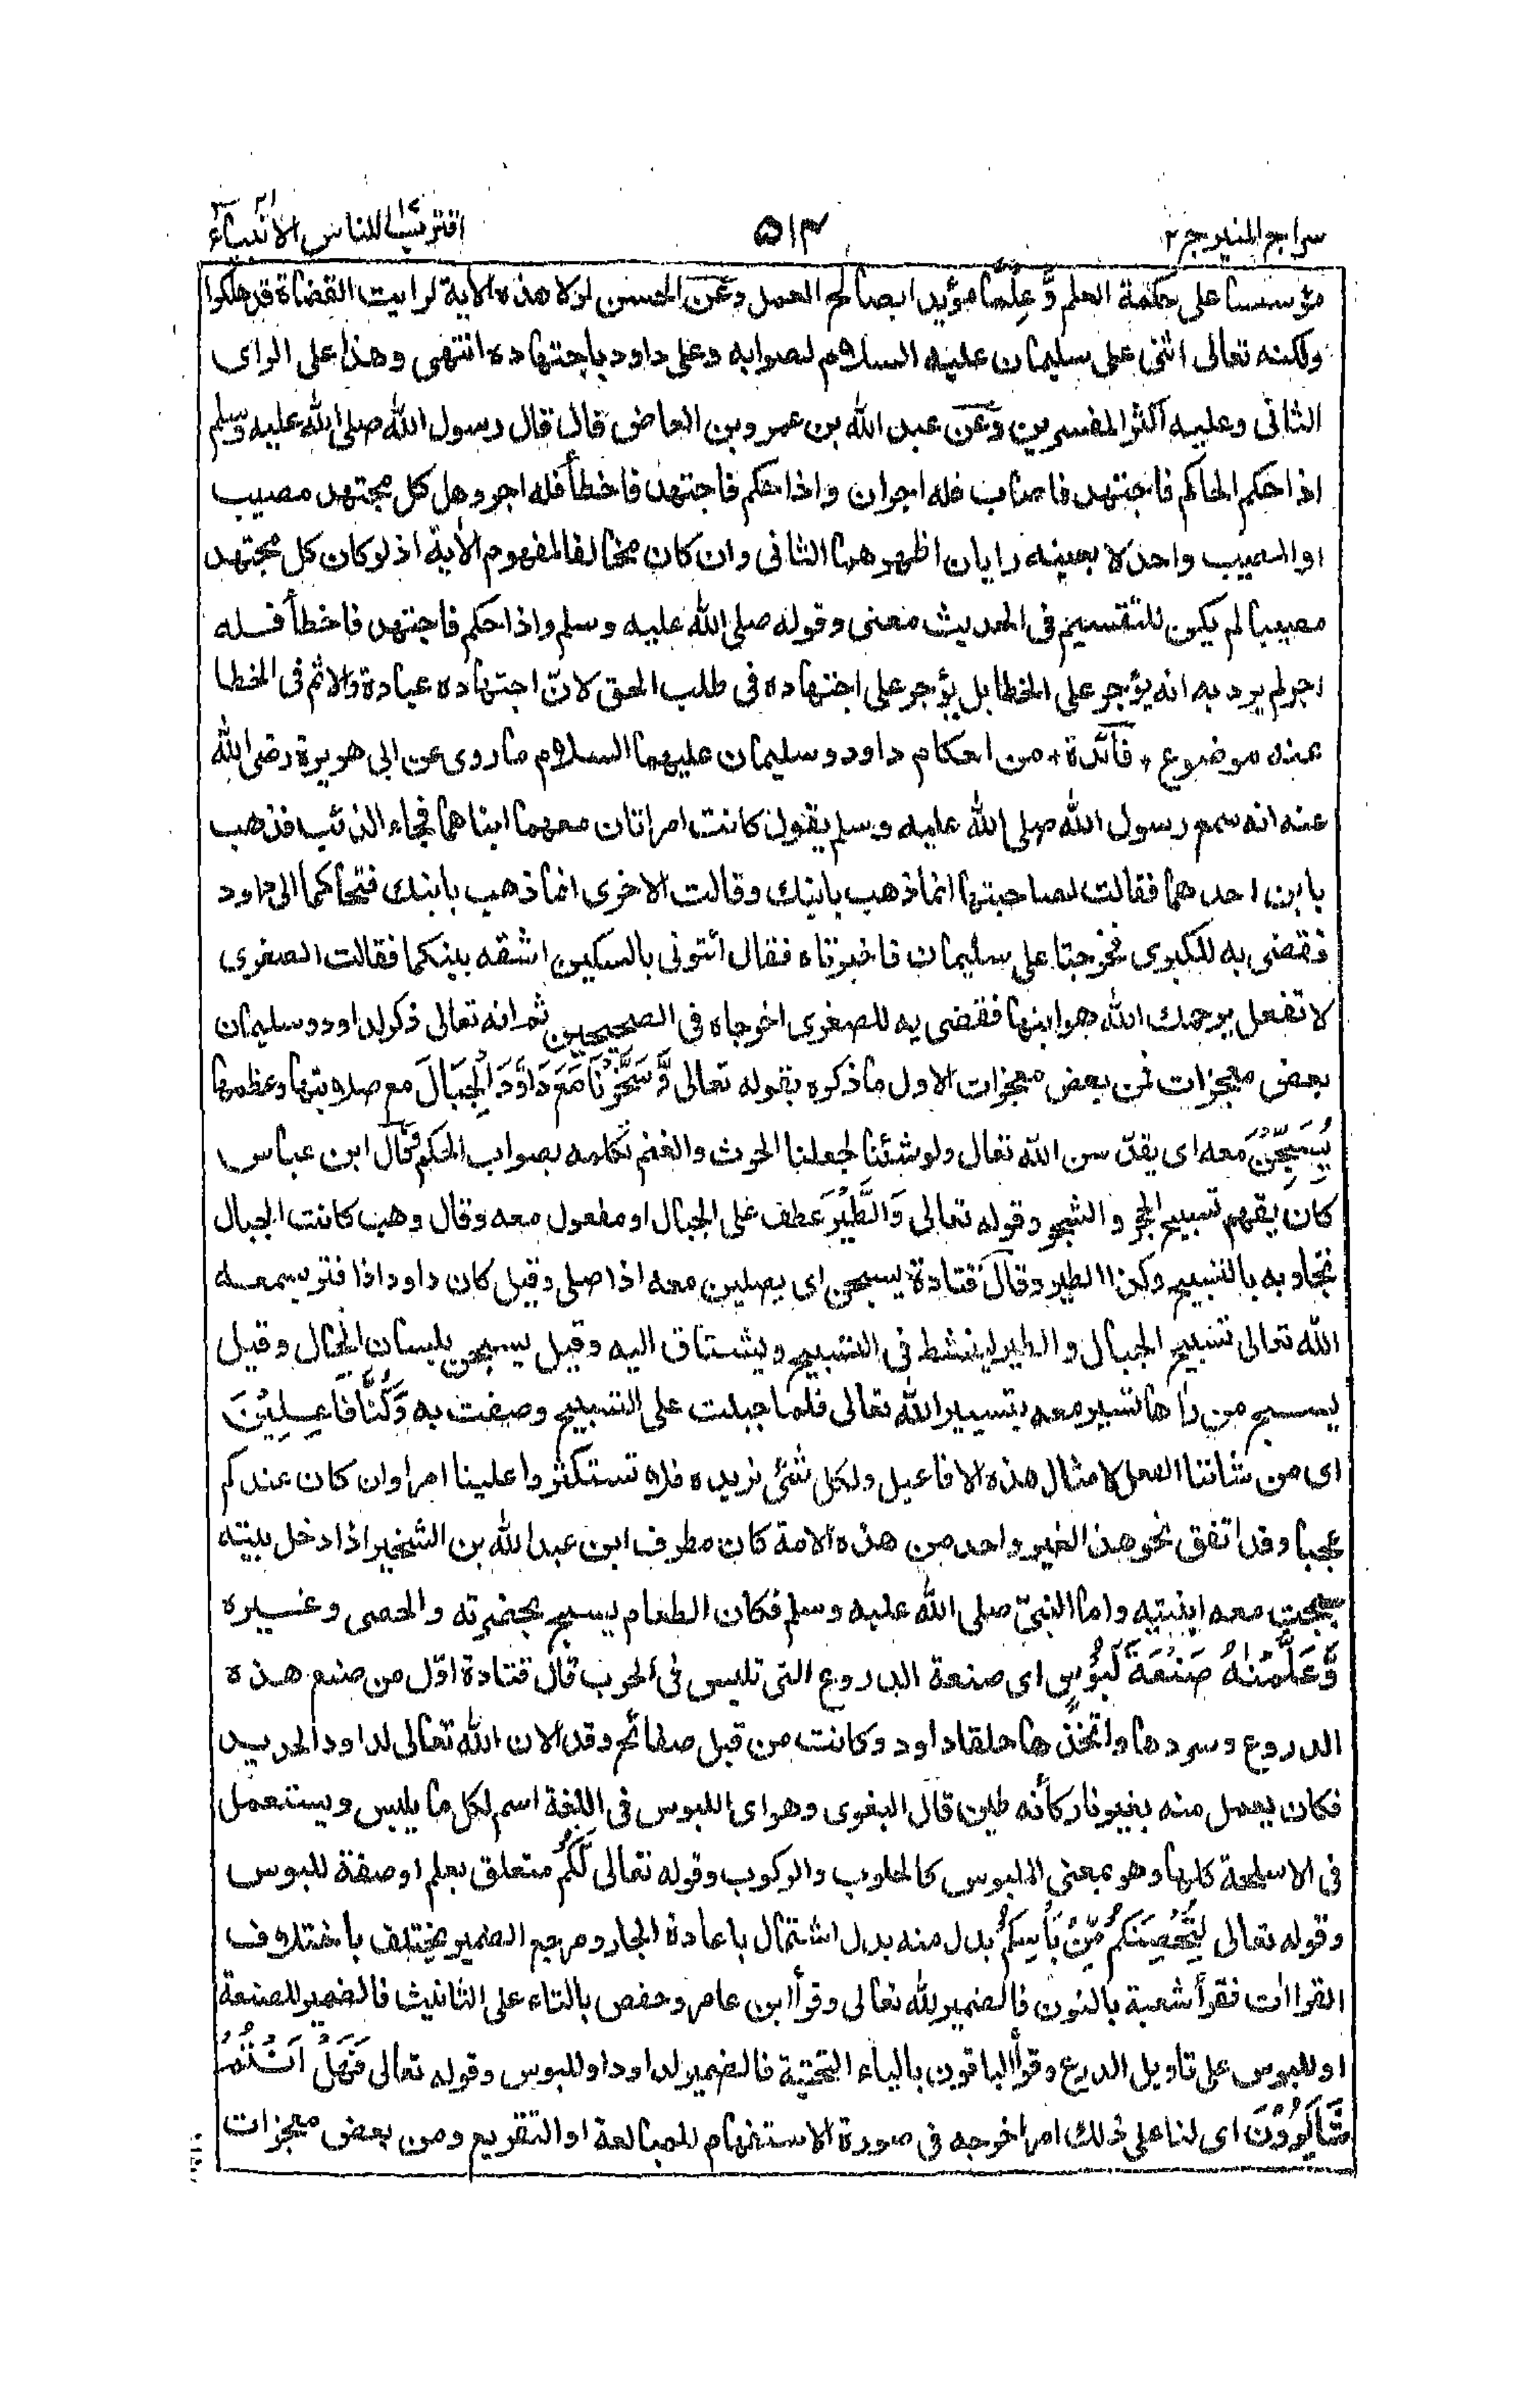 سراج المنير ج ٢
٥١٣
اقترب للناس ١٧ الانبياء ٢١
مؤسسا على حكمة العلم وَّعِلْمًا مؤيدا بصالح العمل وعن الحسن لولا هذه الآية لرايت القضاة قد هلكوا
ولكنه تعالى اثنى على سليمان عليه السلام لصوابه وعلى داود باجتهاده انتهى وهذا على الراى
الثانى وعليه اكثر المفسرين وعن عبد الله بن عمرو بن العاص قال قال رسول الله صلى الله عليه وسلم
اذا حكم الحاكم فاجتهد فاصاب فله اجران واذا حكم فاجتهد فاخطأ فله اجر وهل كل مجتهد مصيب
او المصيب واحد لا بعينه رايان اظهرهما الثانى وان كان مخالفا لمفهوم الآية اذ لو كان كل مجتهد
مصيبا لم يكون للتقسيم فى الحديث معنى وقوله صلى الله عليه وسلم واذا حكم فاجتهد فاخطأ فله
اجر لم يرد به انه يؤجر على الخطا بل يؤجر على اجتهاده فى طلب الحق لانّ اجتهاده عبادة والاثم فى الخطا
عنه موضوع * فائدة * من احكام داود وسليمان عليهما السلام ما روى عن ابى هريرة رضى الله
عنه انه سمع رسول الله صلى الله عليه وسلم يقول كانت امراتان معهما ابناهما فجاء الذئب فذهب
بابن احدهما فقالت لصاحبتها انما ذهب بابنك وقالت الاخرى انما ذهب بابنك فتحاكما الى داود
فقضى به للكبرى فخرجتا على سليمان فاخبرتاه فقال ائتونى بالسكين اشقه بينكما فقالت الصغرى
لا تفعل يرحمك الله هو ابنها فقضى به للصغرى اخرجاه فى الصحيحين ثم انه تعالى ذكر لداود وسليمان
بعض معجزات فمن بعض معجزات الاول ما ذكره بقوله تعالى وَّسَخَّرْنَا مَعَ دَاوٗدَ الْجِبَالَ مع صلابتها وعظمها
يُسَبِّحْنَ معه اى يقدّسن الله تعالى ولو شئنا لجعلنا الحرث والغنم تكلمه بصواب الحكم وقال ابن عباس
كان يفهم تسبيح الحجر والشجر وقوله تعالى وَالطَّيْرَ عطف على الجبال او مفعول معه وقال وهب كانت الجبال
تجاوبه بالتسبيح وكذا الطير وقال قتادة يسبحن اى يصلين معه اذا صلى وقيل كان داود اذا فتر يسمعه
الله تعالى تسبيح الجبال والطير لينشط فى التسبيح ويشتاق اليه وقيل يسبحن بلسان الحال وقيل
يسبح من راها تسير معه بتسيير الله تعالى فلما جبلت على التسبيح وصفت به وَكُنَّا فَاعِلِيْنَ
اى من شاننا الفعل لامثال هذه الافاعيل ولكل شئ نريده فلا تستكثروا علينا امرا وان كان عندكم
عجبا وقد اتفق نحو هذا لغير واحد من هذه الامة كان مطرف ابن عبد الله بن الشخير اذا دخل بيته
سبحت معه ابنيته واما النبىّ صلى الله عليه وسلم فكان الطعام يسبح بحضرته والحصى وغيره
وَّعَلَّمْنٰهُ صَنْعَةَ لَبُوْسٍ اى صنعة الدروع التى تلبس فى الحرب قال قتادة اوّل من صنع هذه
الدروع وسردها واتخذها حلقا داود وكانت من قبل صفائح وقد الان الله تعالى لداود الحديد
فكان يعمل منه بغير نار كأنه طين قال البغوى وهو اى اللبوس فى اللغة اسم لكل ما يلبس ويستعمل
فى الاسلحة كلها وهو بمعنى الملبوس كالحلوب والركوب وقوله تعالى لَّكُمْ متعلق بعلم او صفة للبوس
وقوله تعالى لِتُحْصِنَكُمْ مِّنْۢ بَأْسِكُمْ بدل منه بدل اشتمال باعادة الجار ومرجع الضمير يختلف باختلاف
القراات فقرأ شعبة بالنون فالضمير لله تعالى وقرأ ابن عامر وحفص بالتاء على التانيث فالضمير للصنعة
او للبوس على تاويل الدرع وقرأ الباقون بالياء التحتية فالضمير لداود او للبوس وقوله تعالى فَهَلْ اَنْتُمْ
شَاكِرُوْنَ اى لنا على ذلك امر اخرجه فى صورة الاستفهام للمبالغة او التقريع ومن بعض معجزات